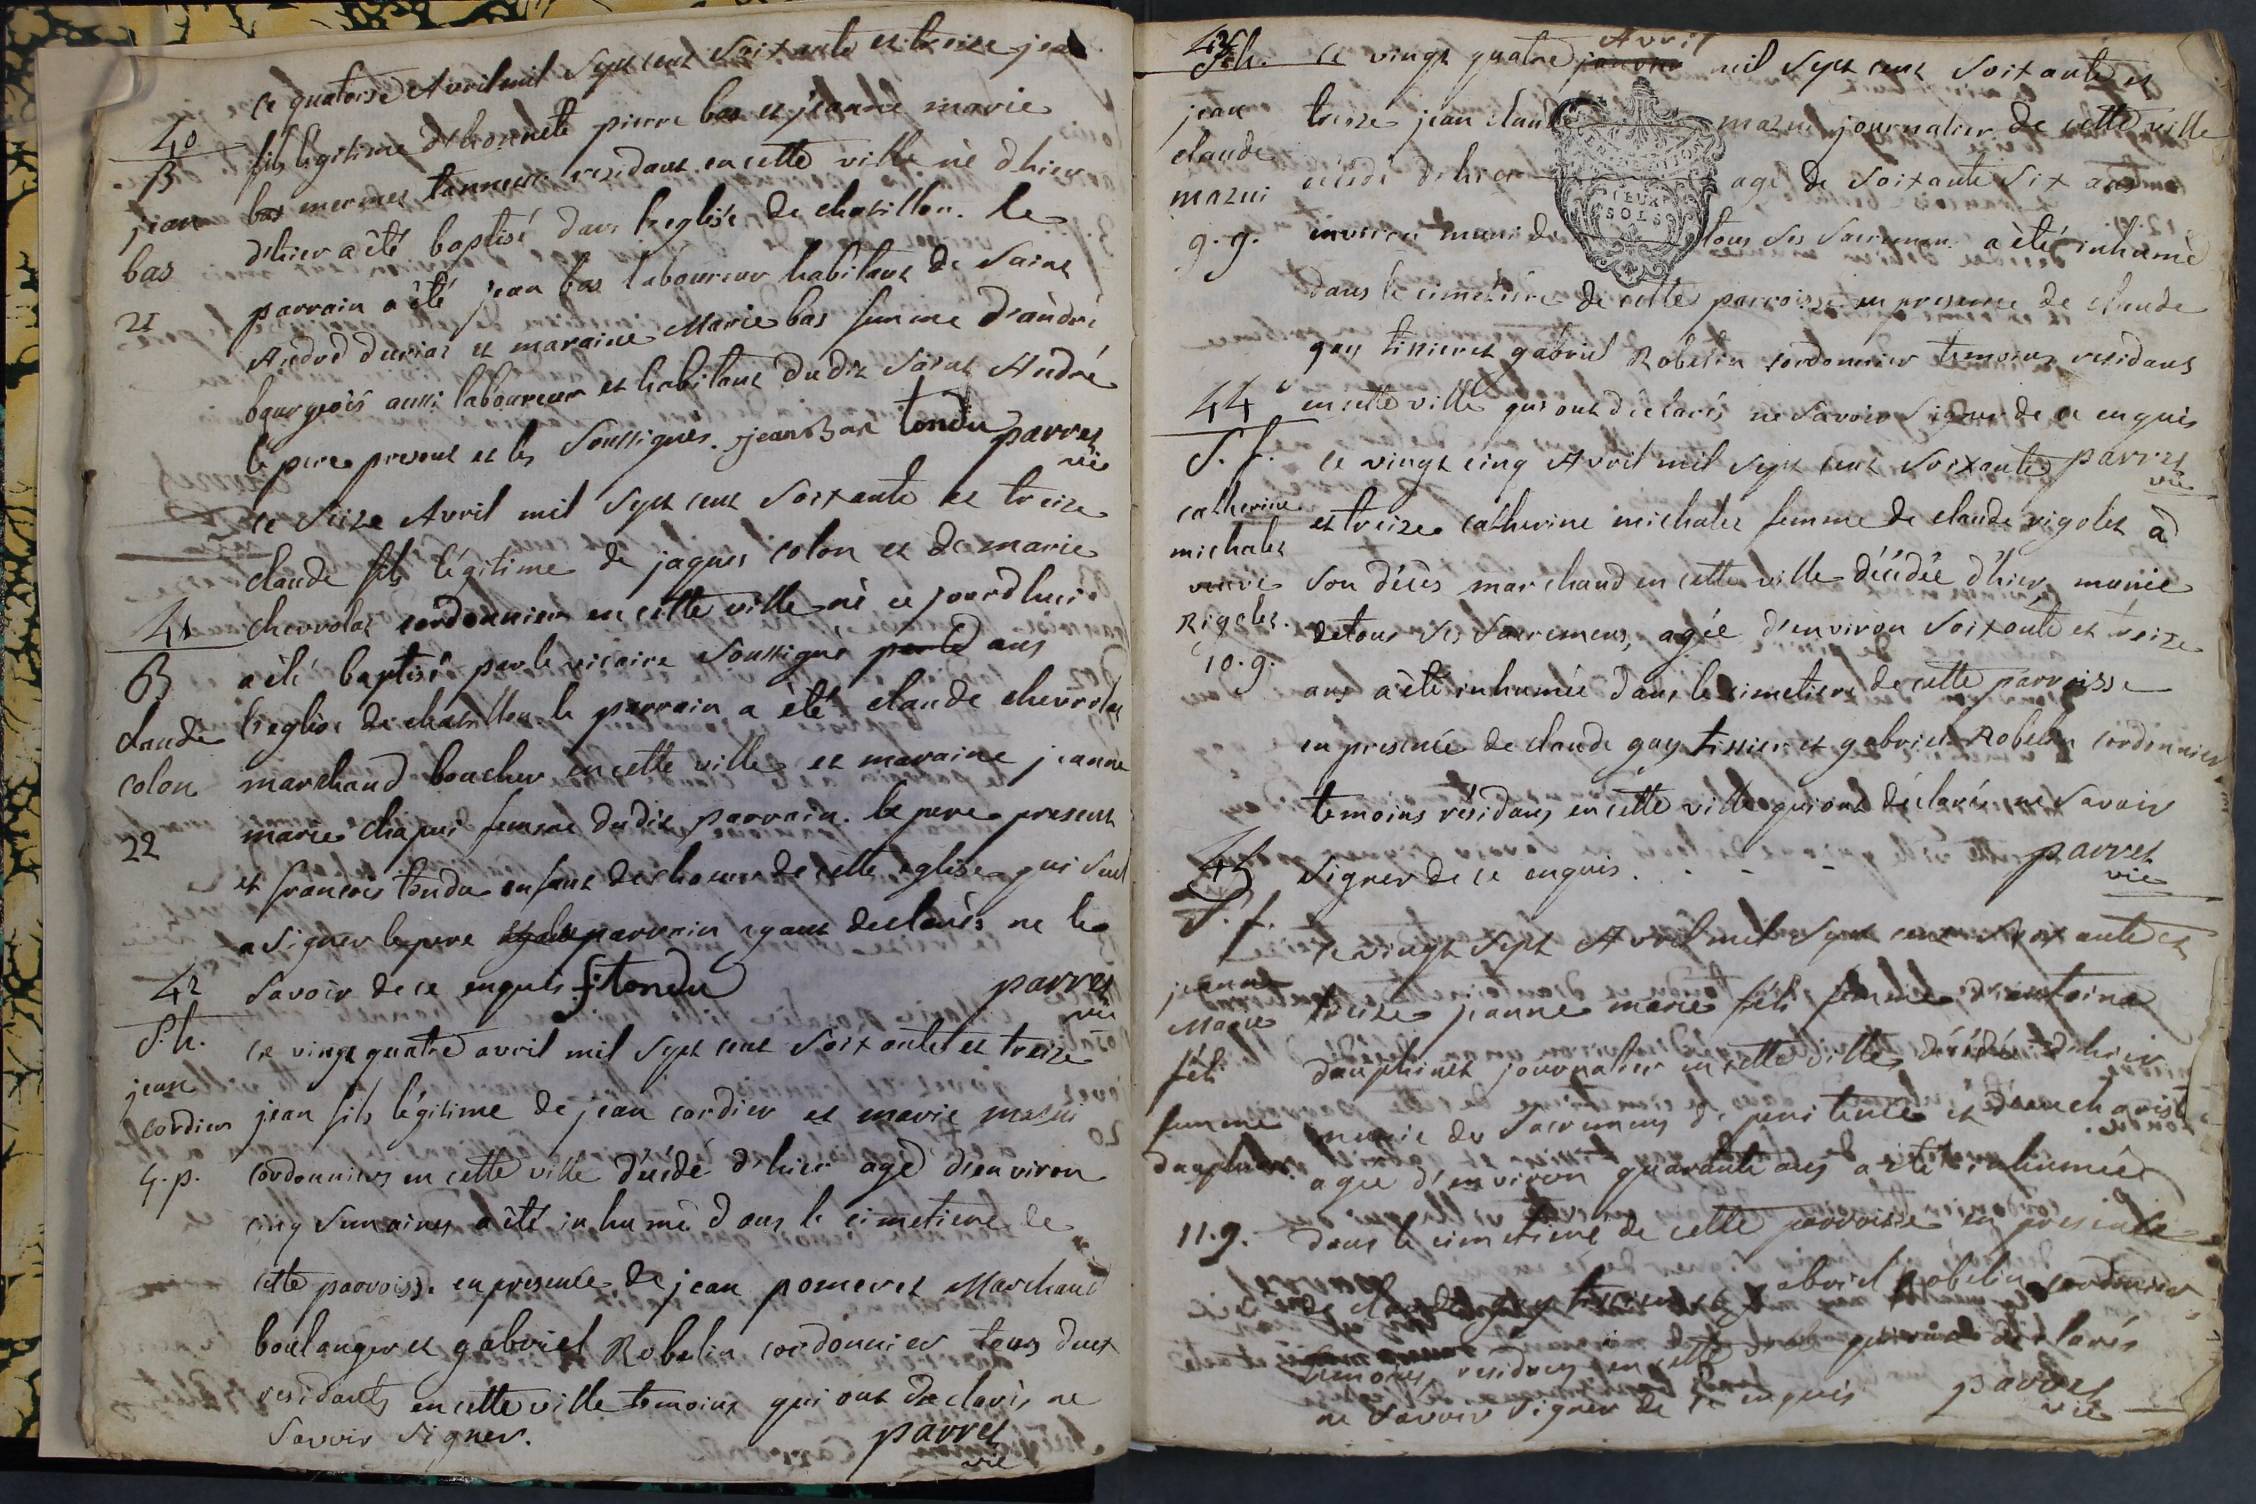 40
B
jean
bas
21
ce quatorse Avril mil sept cent soixante et treise jean
fils legitime d'honnete pierre bas et jeanne marie
bas mermet tanneur residant en cette ville né d'hier
d'hier a èté baptisé dans l'eglise de chatillon. le
parrain a èté jean bas laboureur habitant de saint
André duriat et maraine Marie bas femme d'andré
bourgeois aussi laboureur et habitant dudit saint André
le pere present et les soussignés. jean Bas tondu parret
vic
41
B
claude
colon
22
ce seize Avril mil sept cent soixante et treize
claude fils légitime de jaques colon et de marie
chevrolat cordonnier en cette ville né ce jourdhui
a èté baptisé par le vicaire soussigné dans
l'eglise de chatillon le parrain a èté claude chevrolat
marchand boucher en cette ville et maraine jeanne
marie chapui femme dudit parrain. le pere present
et francois tondu enfant de choeur de cette eglise qui seul
a signer le pere parrain ayant declarés ne le
savoir de ce enquis f. tondu parret
vic
42
S.h.
jean
cordier
4.p.
ce vingt quatre avril mil sept cent soixante et treize
jean fils légitime de jean cordier et marie mazui
cordonniers en cette ville décédé d'hier agé d'environ
cinq semaines a èté inhumé dans le cimetiere de
cette parroisse en presence de jean pomeret Marchand
boulanger et gabriel Robelin cordonnier tous deux
residants en cette ville temoins qui ont declarés ne
savoir signer. parret
vic
43
S.h.
jean
claude
mazui
9.g.
Avril
ce vingt quatre janvier mil sept cent soixante et
treize jean claude mazui journalier de cette ville
décédé d'hier agé de soixante six ans
environ muni de tous ses sacremens a èté inhumé
dans le cimetiere de cette parroisse en presence de claude
gay tissier et gabriel Robelin cordonnier temoins residans
en cette ville qui ont déclarés ne savoir signer de ce enquis
parret
vic
44
S.f.
catherine
michalet
veuve
Rigolet.
10.g.
ce vingt cinq Avril mil sept cent soixante
et treize catherine michalet femme de claude rigolet a
son décès marchand en cette ville décédée d'hier munie
de tous ses sacremens, agée d'environ soixante et treize
ans a èté inhumée dans le cimetiere de cette parroisse
en presence de claude gay tissier et gabriel Robelin cordonnier
temoins résidans en cette ville qui ont déclarés ne savoir
signer de ce enquis. parret
vic
45
S.f.
jeanne
Marie
féli
femme
dauphinet
11.g.
ce vingt sept Avril mil sept cent soixante et
treize jeanne marie féli femme d'antoine
dauphinet journalier en cette ville décédée d'hier
munie des sacremens de penitence et d'eucharistie
agée d'environ quarante ans a èté inhumée
dans le cimetiere de cette parroisse en presence
de claude gay tissier et gabriel Robelin cordonnier
temoins residens en cette ville qui ont declarés
ne savoir signer de ce enquis parret
vic
SOLS